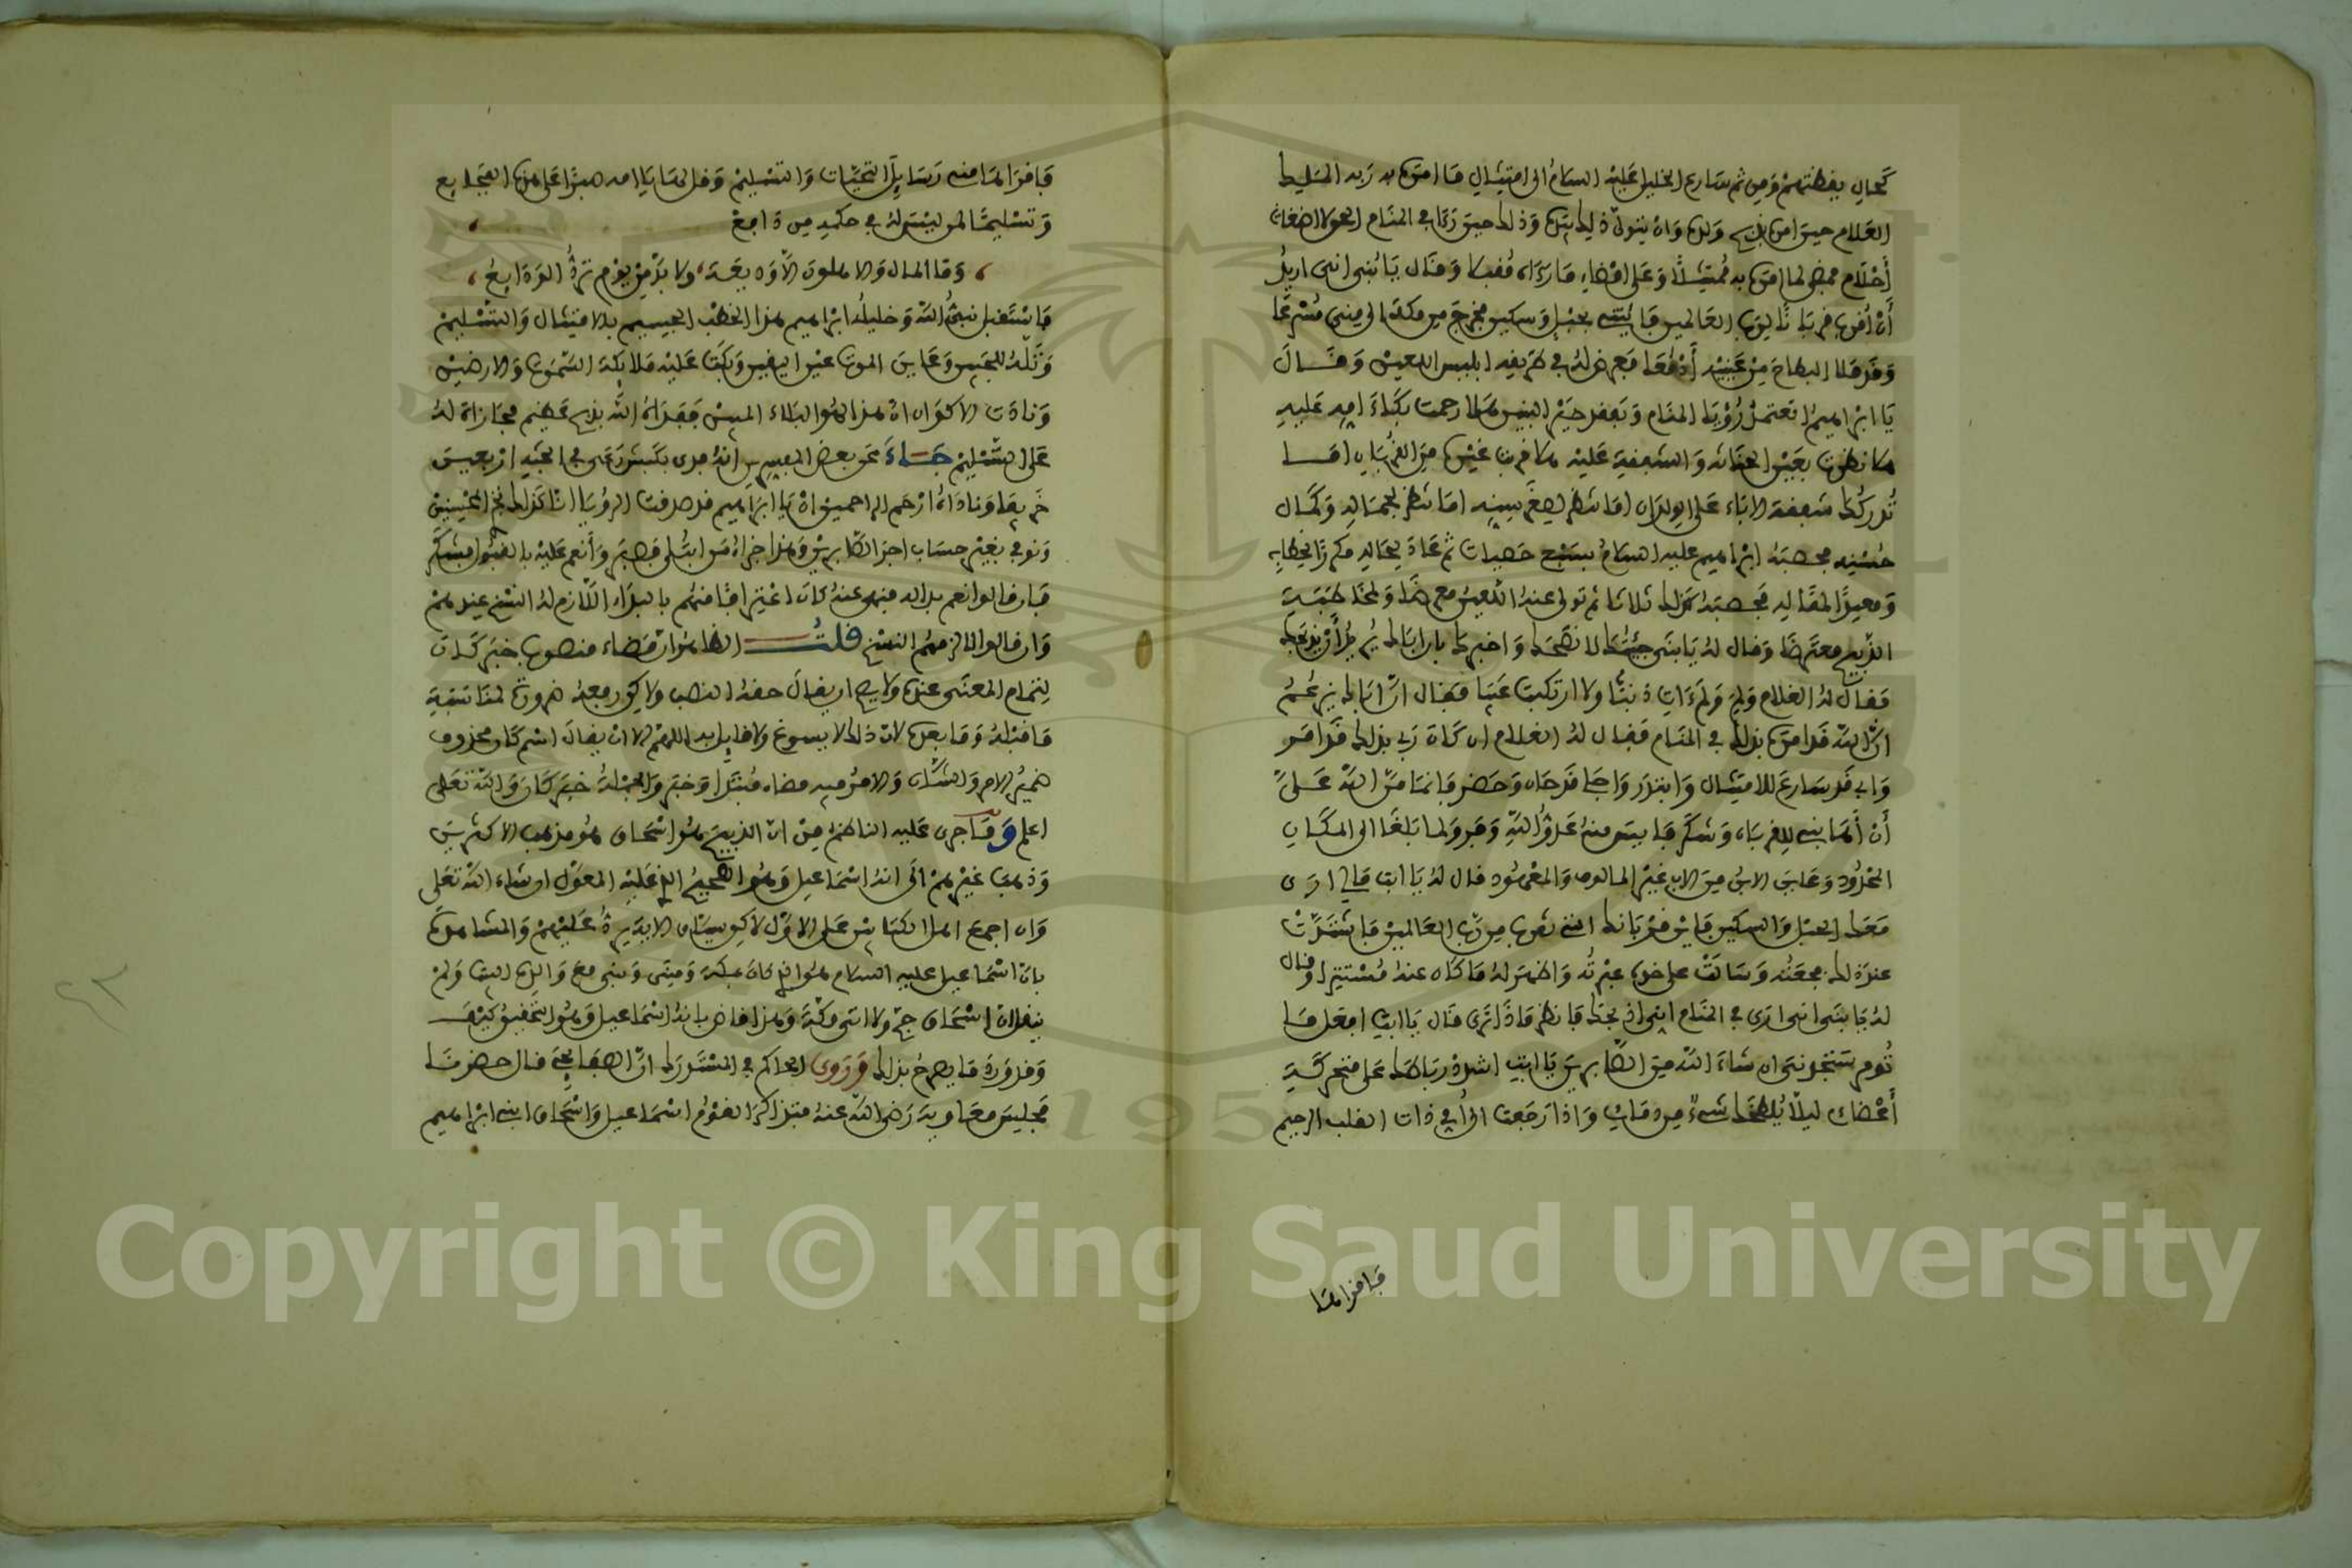 كحال يقظتهم ومن ثم سارع الخليل عليه السلام الى امتثال ما امره به ربه المليك
العلام حين امره بذبح ولده وان يتولى ذلك بيده وذلك حين رءا في المنام الحق لا اضغاث
أحلام فمضى لما امره به ممتثلا وعلى امضاء ما رءاه مقبلا وقال يا بني اني اريد
أن أقرب قربانا لرب العالمين فأتيني بحبل وسكين فخرج من مكة الى منى مسرعا
وقد ملأ البطاح من عينيه أدمعا فعرض له في طريقه ابليس اللعين وقال
يا ابراهيم اتعتمد رؤيا المنام وتفعل خير البنين هلا رحمت بكاء امه عليه
هلا نظرت بعين الحنانه والشفقة عليه هلا قربت غيره من القربان اما
تدركك شفقة الاباء على الولدان اما تنظر لصغر سنه اما تنظر لجماله وكمال
حسنه فحصبه ابراهيم عليه السلام بسبع حصيات ثم عاد لحاله مكررا لخطابه
ومعيدا لمقاله فحصبه كذلك ثلاثا ثم تولى عنه اللعين معرضا ولمخاطبة
الذبيح معترضا وقال له يا بني جئتك لانصحك واخبرك بان اباك يريد أن يذبحك
فقال له الغلام ولم ولم ءات ذنبا ولا ارتكبت عيبا فقال ان اباك يزعم
ان الله قد امره بذلك في المنام فقال له الغلام ان كان ربي بذلك قد امر
وابي قد سارع للامتثال وابتدر واجا فرحان وحضر فانما من الله علي
أن أهابني للقربان وشكر فايس منه عدو الله وفر ولما بلغا الى المكان
المحدود وعاين الابن من الاب غير المالوف والمعهود قال له يا ابت ما لي ارى
معك الحبل والسكين فاين قربانك الذي تقربه من رب العالمين فاشتدت
عند ذلك فجعته وسالت على خده عبرته واظهر له ما كان عنه مستترا وقال
له يا بني اني ارى في المنام اني اذبحك فانظر ماذا ترى قال يا ابت افعل ما
تومر ستجدني ان شاء الله من الصابرين يا ابت اشدد رباطك على متحركة
أعضاي ليلا يلطخك شيء من دماي واذا رجعت الى أمي ذات القلب الرحيم
فاقرا لها
فاقرا لها مني رسايل التحيات والتسليم وقل لها يا امه صبرا على هذه الفجايع
وتسليما لمن ليس له في حكمه من دافع
وما المال والاهلون الا وديعة ولا بد من يوم ترد الودايع
فاستقبل نبي الله وخليله ابراهيم هذا الخطب الجسيم بالامتثال والتسليم
وتله للجبين وعاين الموت عين اليقين وبكت عليه ملايكة السموات والارضين
ونادت الاكوان ان هذا لهو البلاء المبين ففداه الله بذبح عظيم مجازاة له
على التسليم جاء عن بعض المفسرين انه فدى بكبش رعى في الجنة اربعين
خريفا وناداه ارحم الراحمين ان يا ابراهيم قد صدقت الرؤيا انا كذلك نجزي المحسنين
ونوفي بغير حساب اجر الصابرين وهذا جزاء من ابتلي فصبر وأنعم عليه بالقبول فشكر
فان قالوا نعم بدا له فيهم عنه كان اعترافا منهم بالبداء اللازم له النسخ عندهم
وان قالوا لا لزمهم النسخ قلت الظاهر ان قضاء منصوب خبر كان
لتمام المعنى عنده ولا يصح ان يقال حقه النصب ولا يكون رفعه ضرورة لمناسبة
ما قبله وما بعده لان ذلك لا يسوغ ولا قايل به اللهم الا ان يقال اسم كان محذوف
ضمير الامر والشان والامر فيه قضاء مبتدا وخبر والجملة خبر كان والله تعلى
اعلم وما جرى عليه الناظم من ان الذبيح هو اسحاق هو مذهب الاكثرين
وذهب غيرهم الى انه اسماعيل وهو الصحيح الذي عليه المعول ان شاء الله تعلى
وان اجمع اهل الكتابين على الاول لاكن سياق الاية يرد عليهم والمشاهدة
بان اسماعيل عليه السلام هو الذي كان بمكة ومنى وبنى مع والده البيت ولم
ينقل ان اسحاق حج ولا اتى مكة وهذا قاض بانه اسماعيل وهو التحقيق كيف
وقد ورد ما يصرح بذلك فروى الحاكم في المستدرك ان الصنابحي قال حضرنا
مجلس معاوية رضي الله عنه فتذاكر القوم اسماعيل واسحاق ابني ابراهيم
Copyright © King Saud University
195